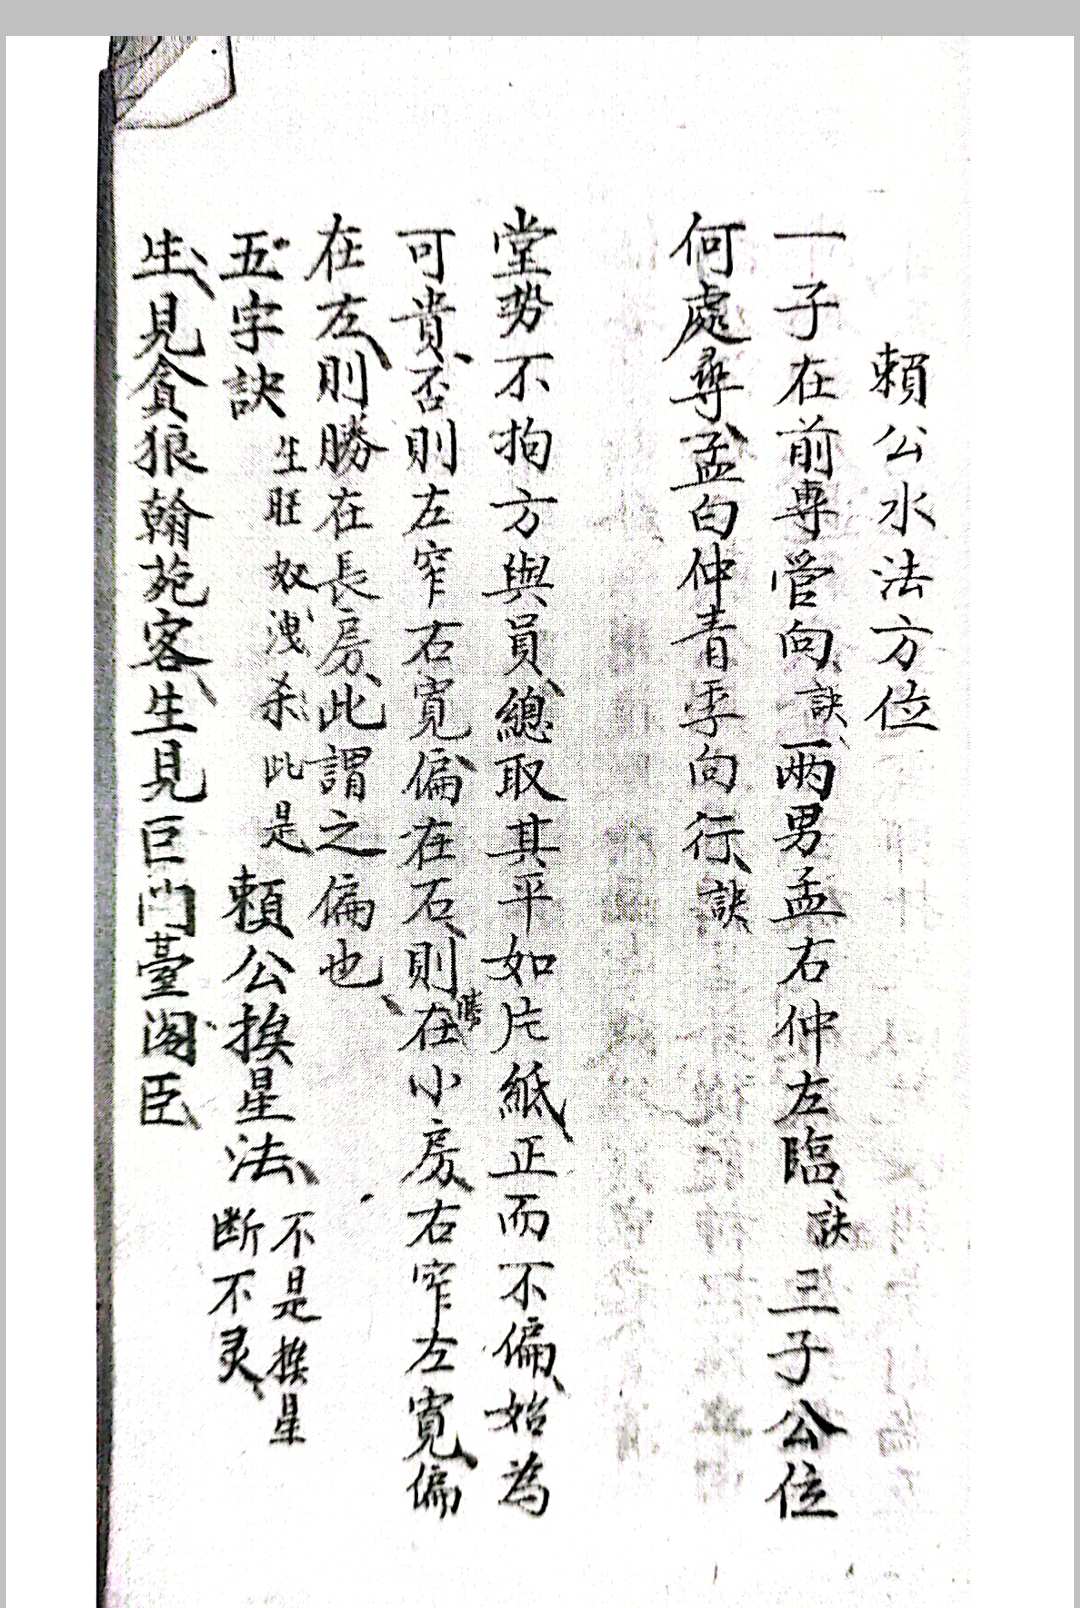 賴公水法方位
一子在前專管向訣兩男孟右仲左臨訣三子公位
何處尋孟白仲青季向行訣
堂势不拘方與員總取其平如片紙正而不偏始為
可貴否則左窄右寬偏在右則勝在小房右窄左寬偏
在左則勝在長房此謂之偏也
五字訣生旺奴洩杀此是賴公挨星法不是挨星断不灵
生見貪狼翰苑客生見巨门臺阁臣